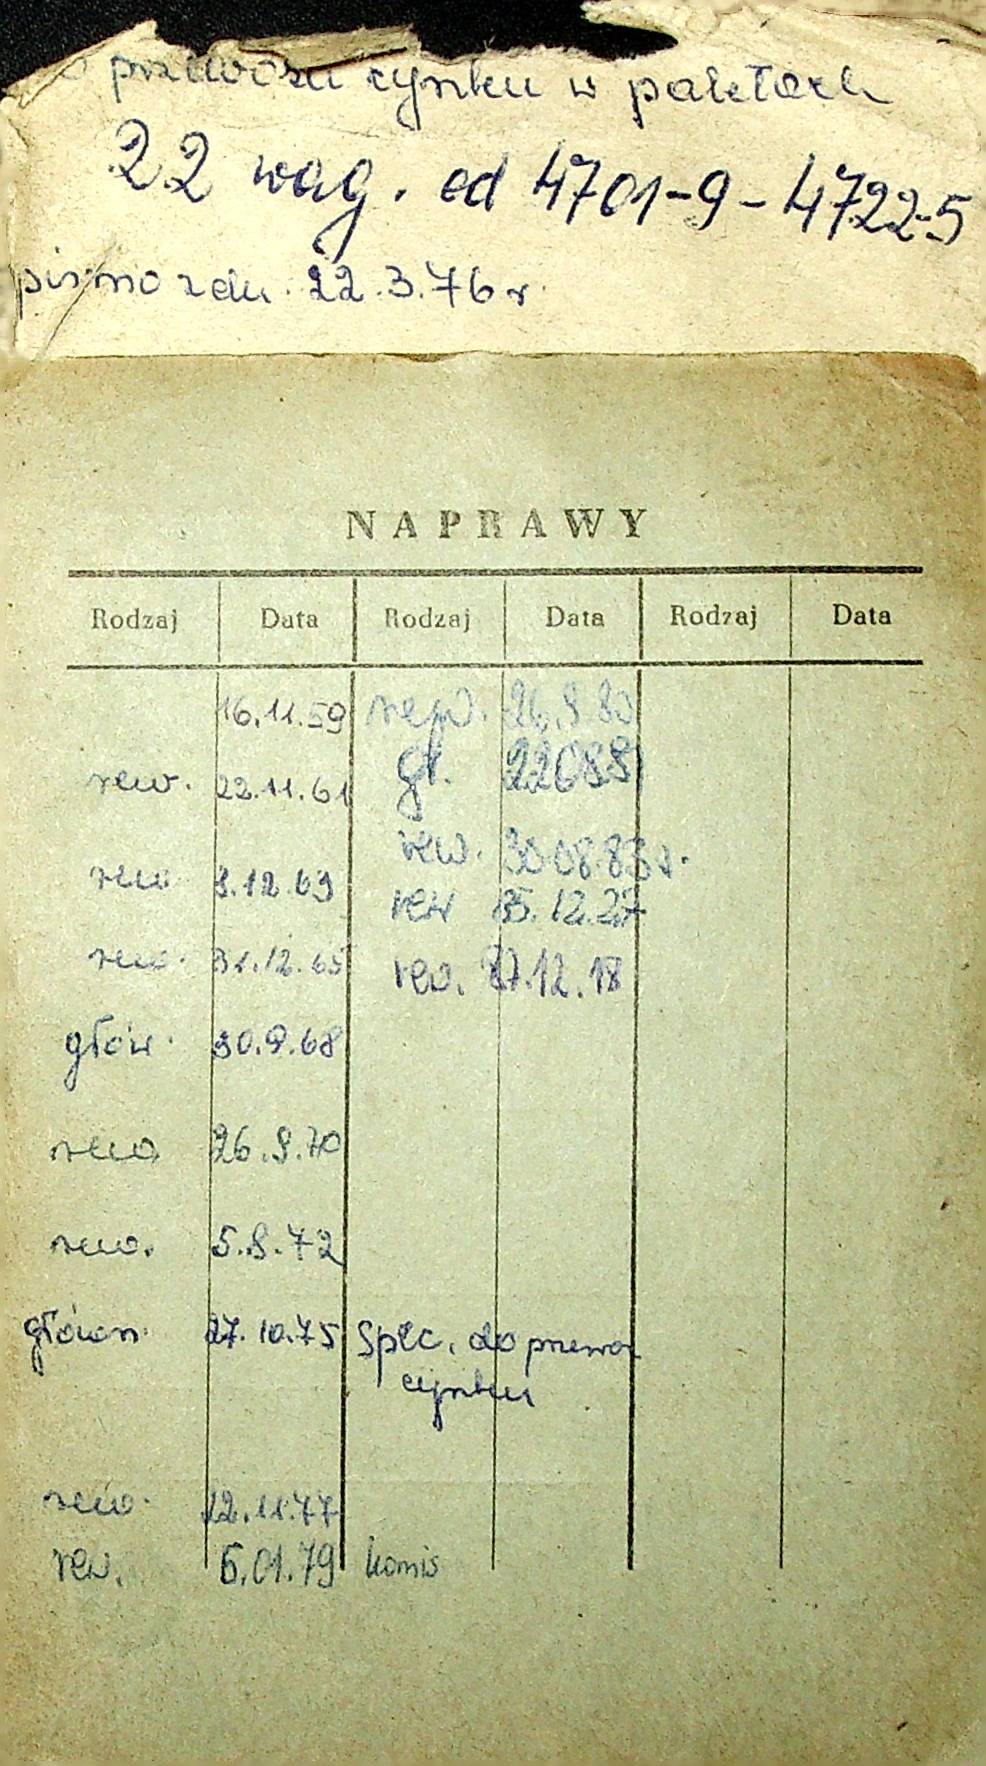 do przewozu cynku w paletach
22 wag. od 4701-9-4722-5
pismo z dn. 22.3.76 r.
NAPRAWY
Rodzaj Data Rodzaj Data Rodzaj Data
16.11.59 rew. 26.9.80
rew. 22.11.61 gł.
rew. 30.08.83r.
rew 9.12.63 rew 85.12.27
rew. 31.12.65 rew. 87.12.18
głów. 30.9.68
rew 26.9.70
rew. 5.8.72
główn. 27.10.75 Spec. do przewoz
cynku
rew. 12.11.77
rew. 6.01.79 komis